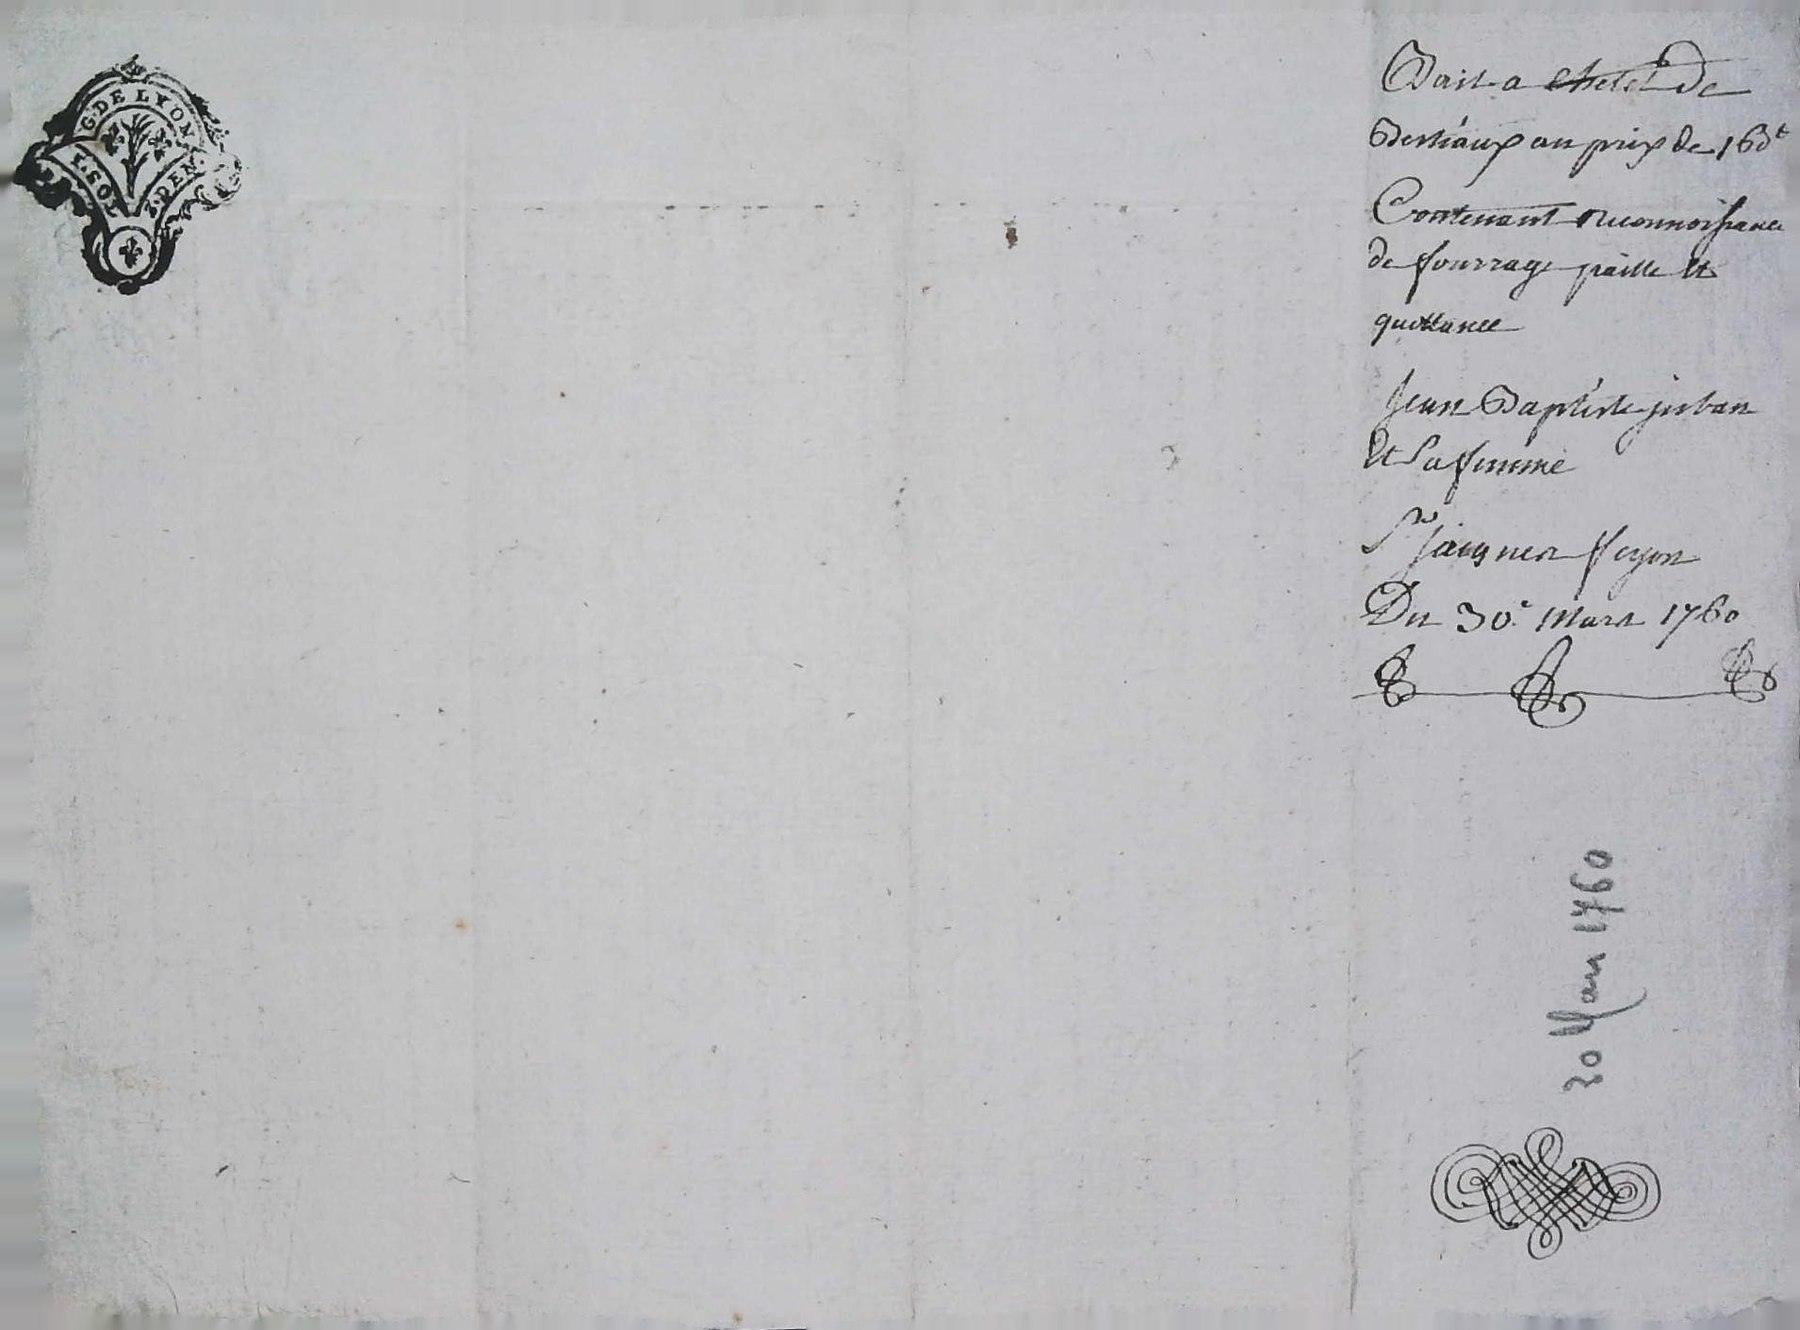 G. DE LYON
1. SOL
DEN.
Bail a chetel de
Bestiaux au prix de 160ᵗ
Contenant reconnoissance
de fourrage paille et
quittance
Jean Baptiste
et Sa femme
Sʳ
Du 30ᵉ Mars 1760
30 Mars 1760